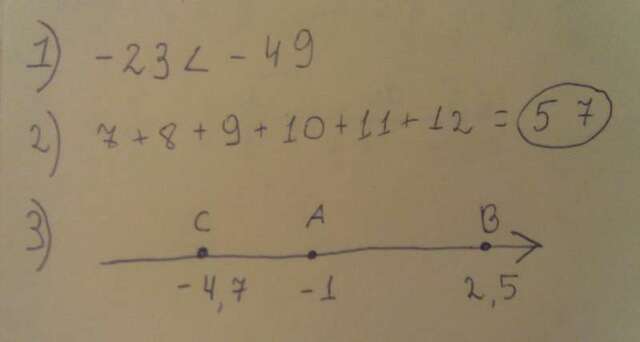 1) -23 < -49
2) 7+8+9+10+11+12 = 57
3) C A B
-4,7 -1 2,5